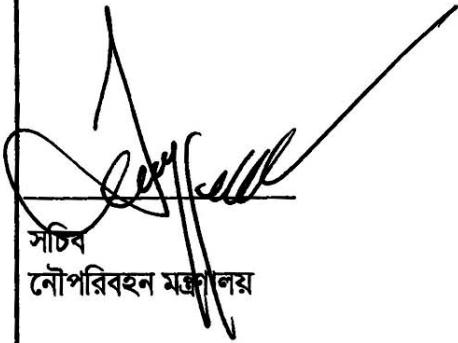 সচিব
নৌপরিবহন মন্ত্রণালয়